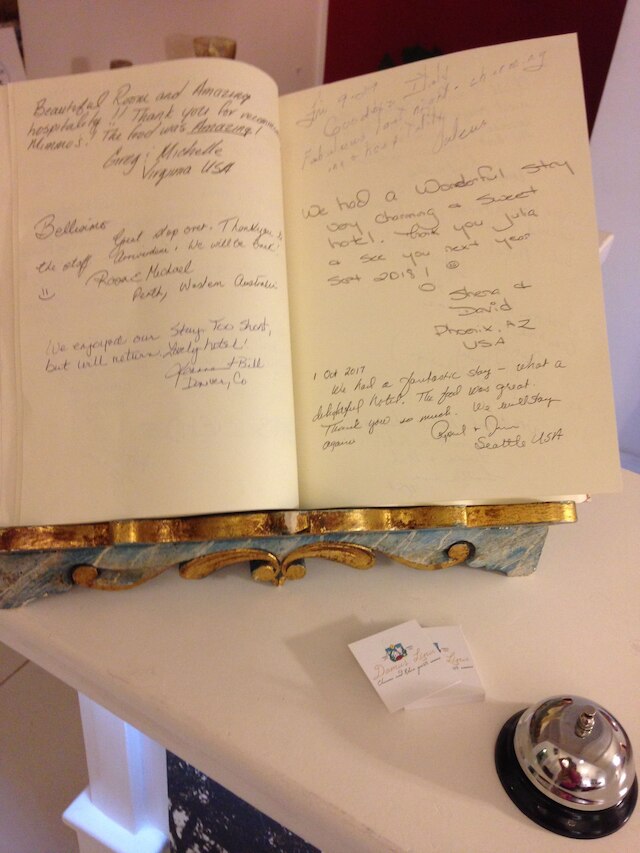 Beautiful Room and Amazing
hospitality!! Thank you for
Mimmos! The food was Amazing!
Greg & Michelle
Virginia USA
Bellissimo
Great stop over. Thank you to
the staff. We will be back!
Rose & Michael
Perth, Western Australia
We enjoyed our Stay. Too Short,
but will return. Lovely hotel!
Bill
Denver, Co
Fabulous last night. charming
We had a Wonderful Stay
very charming & Sweet
hotel. Thank you Julia
& see you next year
Sept 2018!
Shera &
David
Phoenix, AZ
USA
1 Oct 2017
We had a fantastic stay – what a
delightful hotel. The food was great.
Thank you so much. We will stay
again
Seattle USA